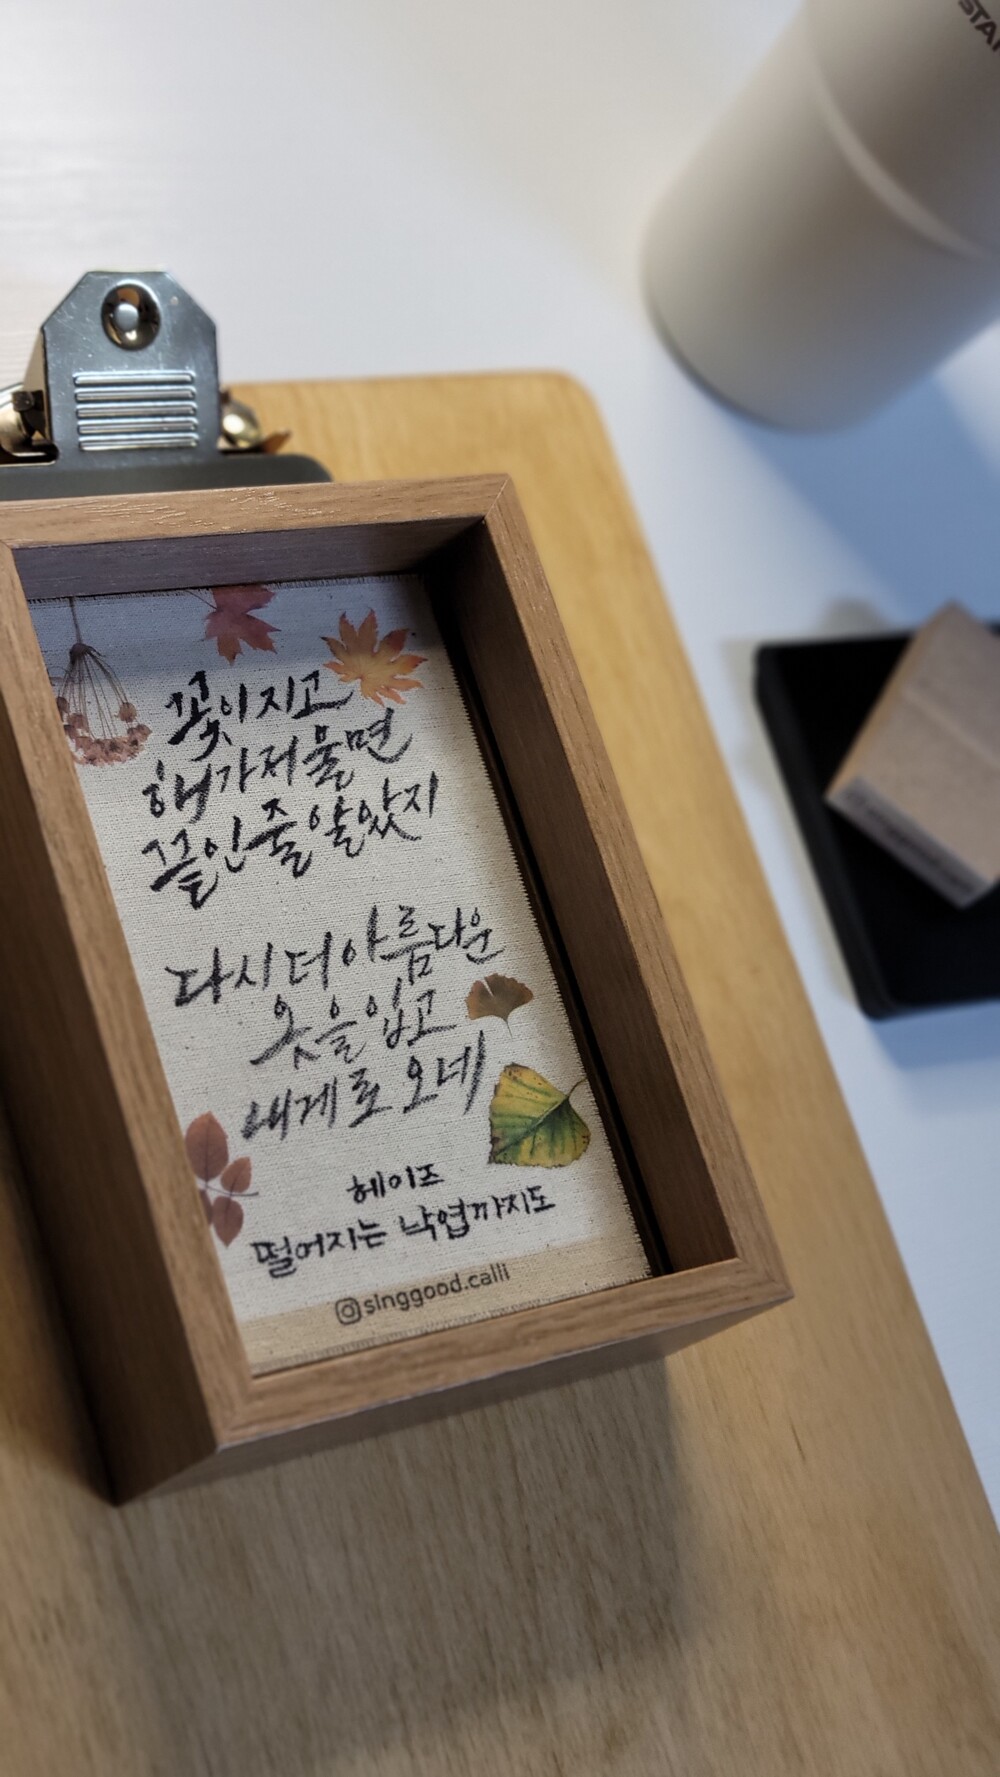 STA
꽃이 지고
해가 저물면
끝인 줄 알았지
다시 더 아름다운
옷을 입고
내게로 오네
헤이즈
떨어지는 낙엽까지도
@singgood.calli